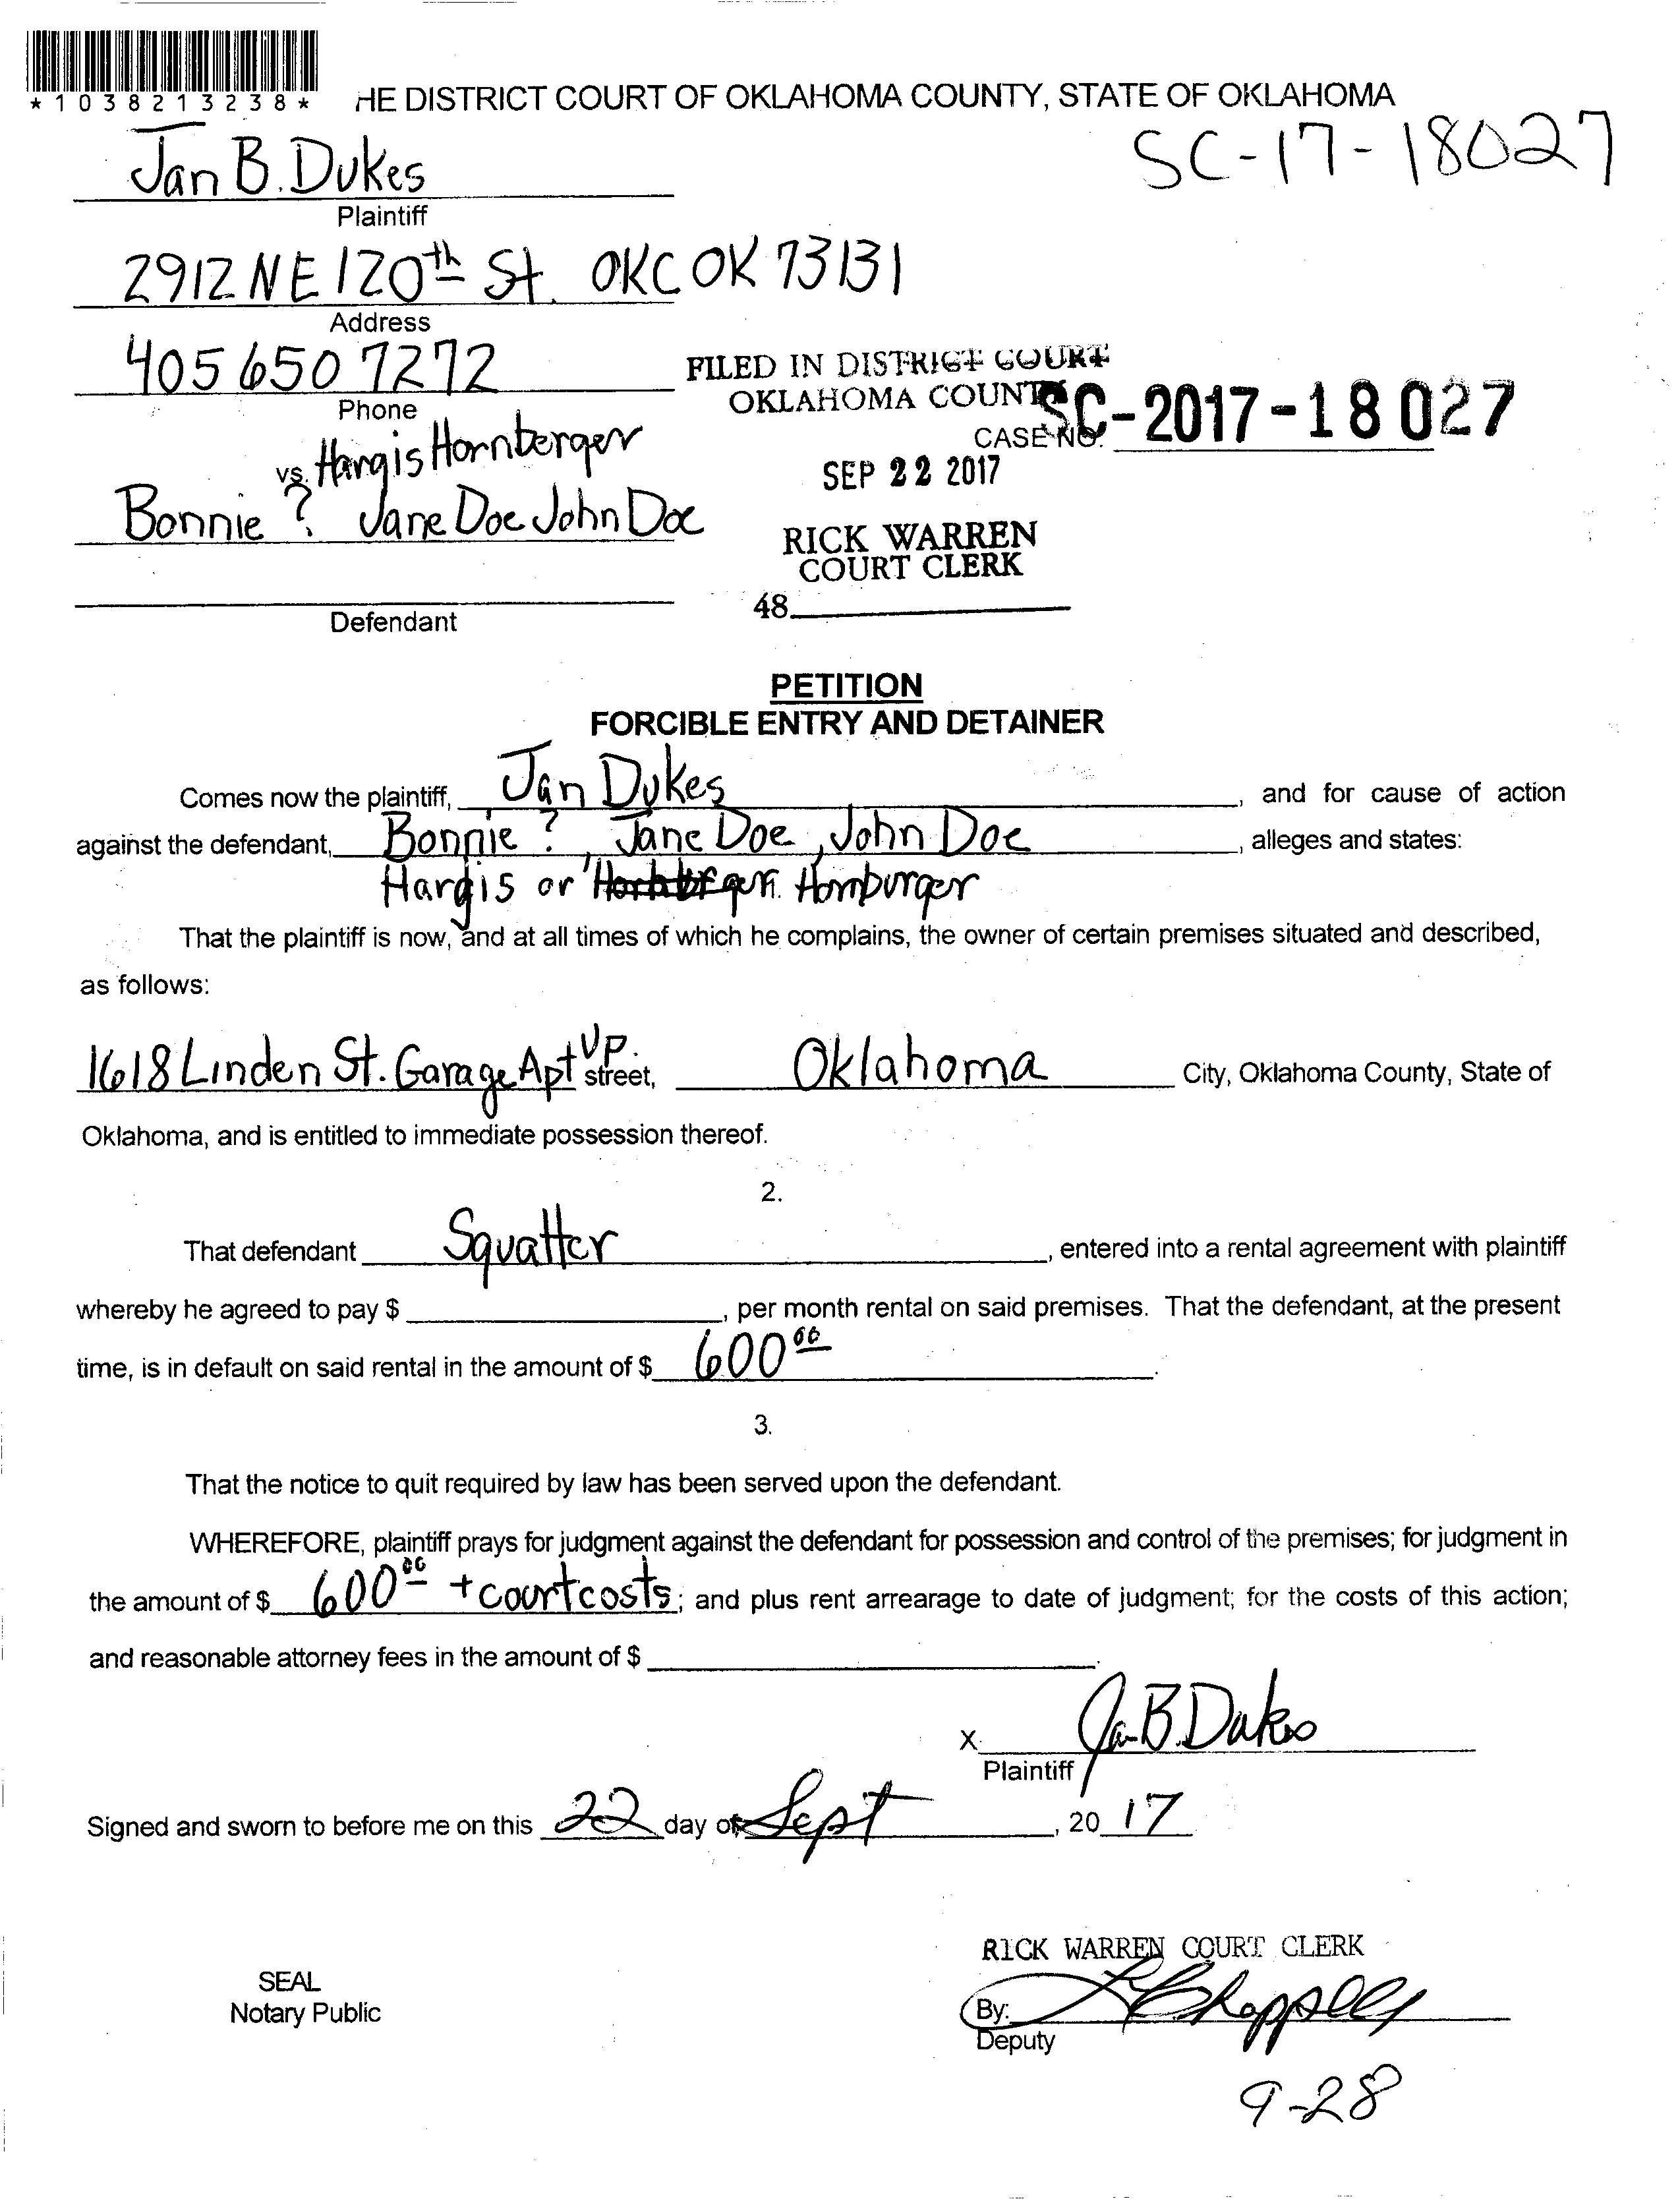 *1038213238*
HE DISTRICT COURT OF OKLAHOMA COUNTY, STATE OF OKLAHOMA
SC-17-18027
Jan B. Dukes
Plaintiff
2912 NE 120th St. OKC OK 73131
Address
405 650 7272
Phone
FILED IN DISTRICT COURT
OKLAHOMA COUNTY
SC-2017-18027
CASE NO.
vs. Hargis Hornberger
SEP 22 2017
Bonnie ? Jane Doe John Doe
RICK WARREN
COURT CLERK
48
Defendant
PETITION
FORCIBLE ENTRY AND DETAINER
Comes now the plaintiff, Jan Dukes, and for cause of action
against the defendant, Bonnie ?, Jane Doe, John Doe, alleges and states:
Hargis or Hornburger
That the plaintiff is now, and at all times of which he complains, the owner of certain premises situated and described,
as follows:
1618 Linden St. Garage Apt UP. street, Oklahoma City, Oklahoma County, State of
Oklahoma, and is entitled to immediate possession thereof.
2.
That defendant Squatter, entered into a rental agreement with plaintiff
whereby he agreed to pay $, per month rental on said premises. That the defendant, at the present
time, is in default on said rental in the amount of $ 600 00.
3.
That the notice to quit required by law has been served upon the defendant.
WHEREFORE, plaintiff prays for judgment against the defendant for possession and control of the premises; for judgment in
the amount of $ 600 00 + court costs; and plus rent arrearage to date of judgment; for the costs of this action;
and reasonable attorney fees in the amount of $.
X Jan B. Dukes
Plaintiff
Signed and sworn to before me on this 22 day of Sept, 20 17
RICK WARREN COURT CLERK
SEAL
Notary Public
By: Chappell
Deputy
9-28